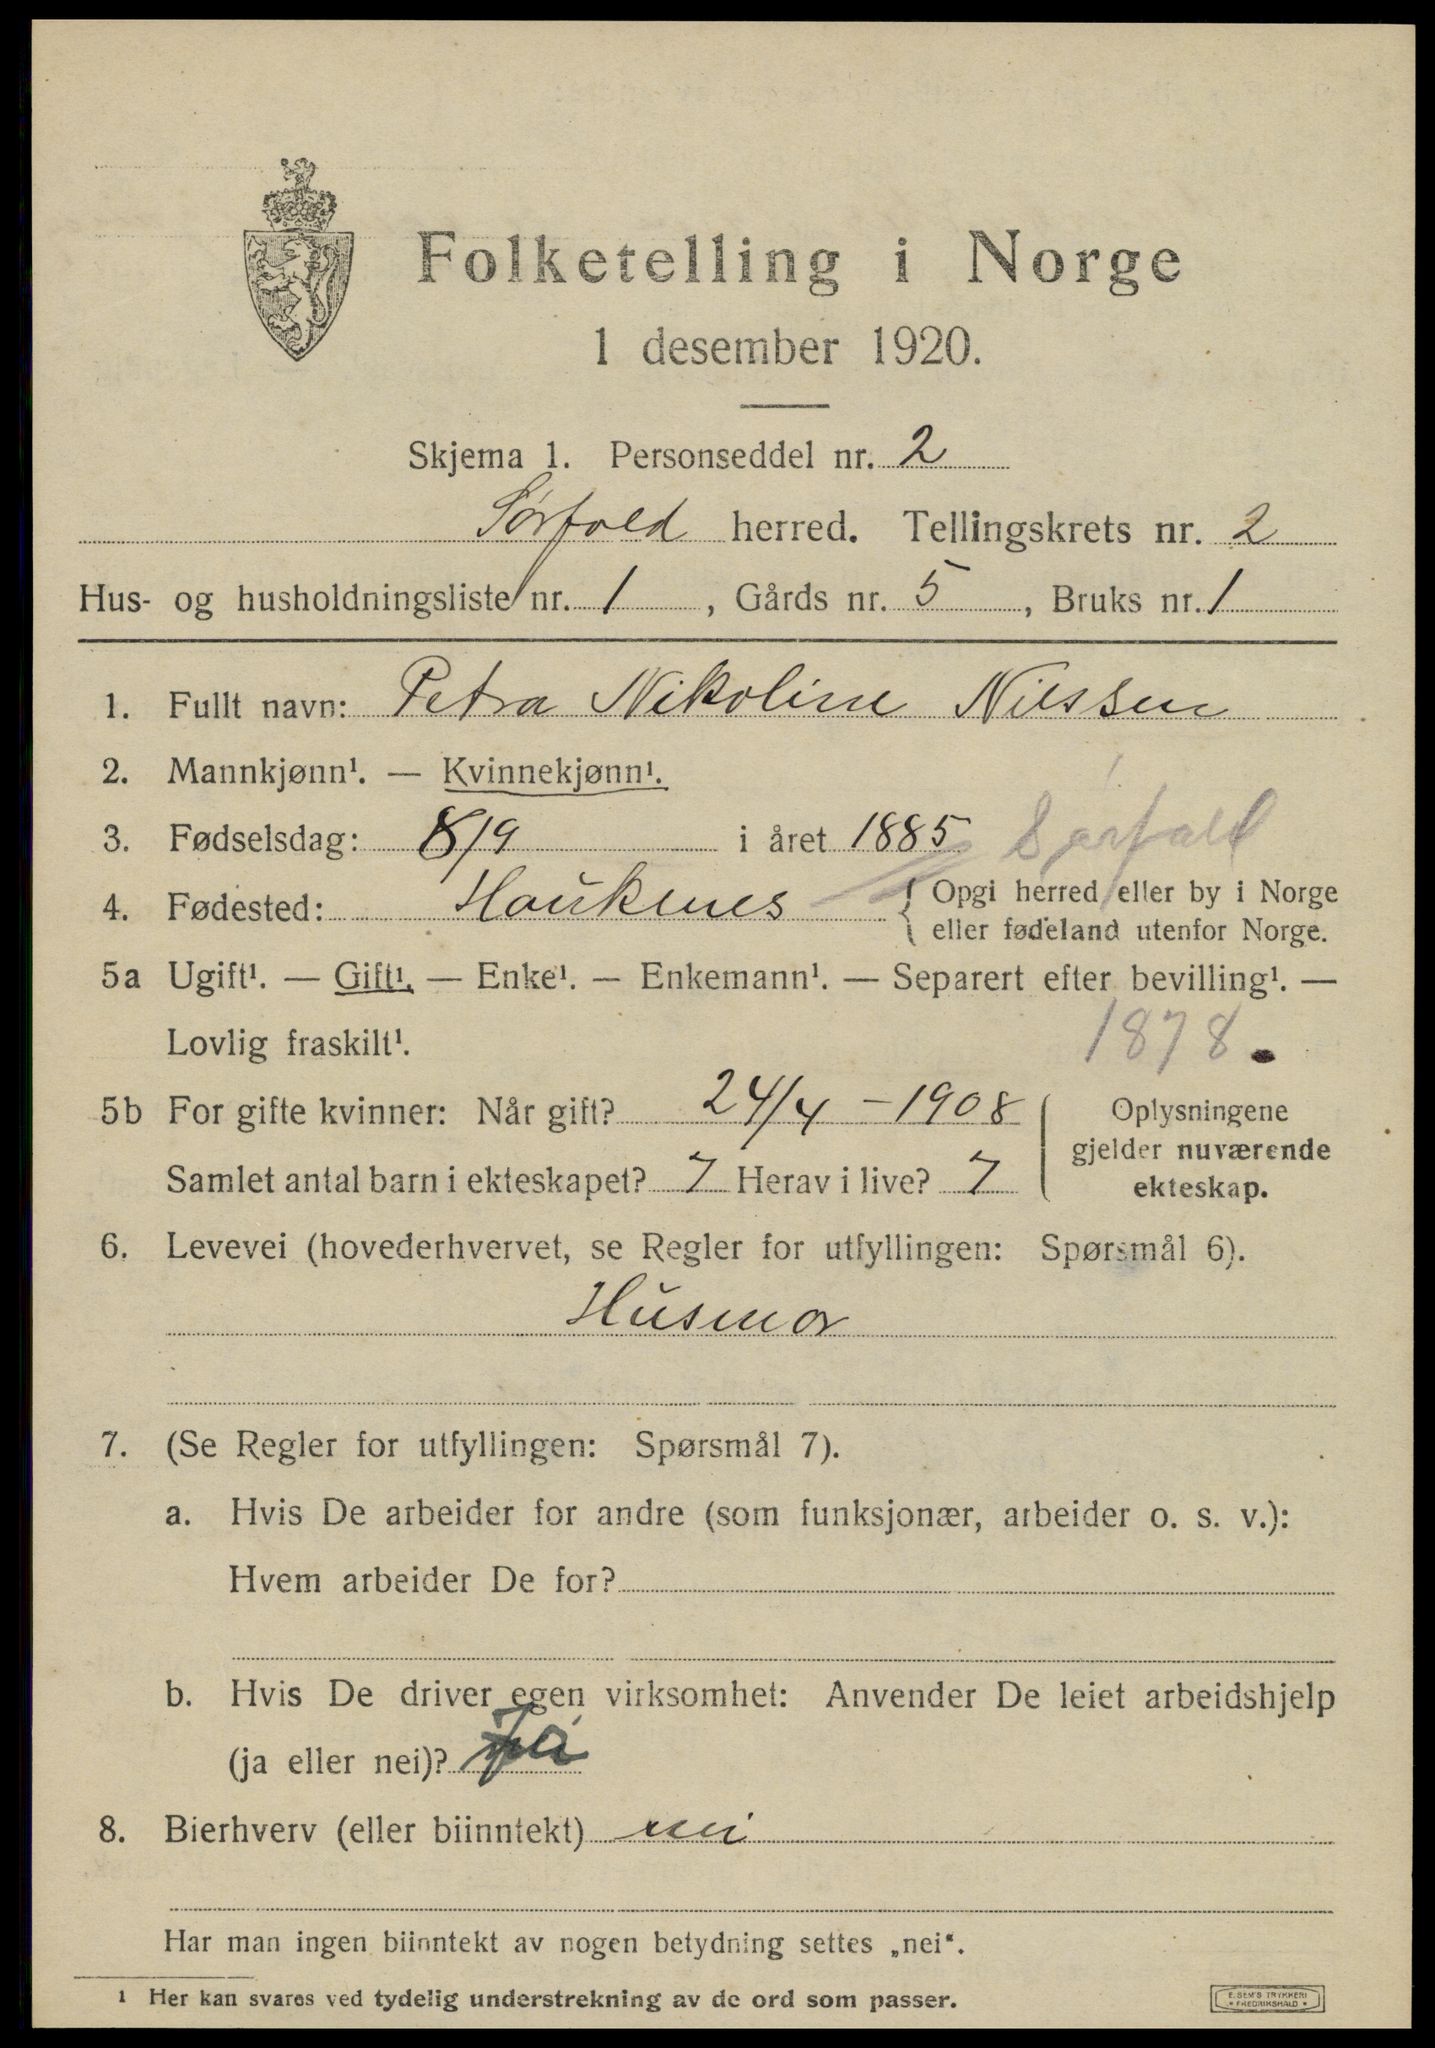 Folketelling i Norge
1 desember 1920.
Skjema 1. Personseddel nr. 2
Sørfold herred. Tellingskrets nr. 2
Hus- og husholdningsliste nr. 1, Gårds nr. 5, Bruks nr. 1
1. Fullt navn: Petra Nikoline Nilssen
2. Mannkjønn¹. — Kvinnekjønn¹.
3. Fødselsdag: 8/9 i året 1885 Sørfold
4. Fødested: Haukenes { Opgi herred eller by i Norge
eller fødeland utenfor Norge.
5a Ugift¹. — Gift¹. — Enke¹. — Enkemann¹. — Separert efter bevilling¹. —
Lovlig fraskilt¹. 1878.
5b For gifte kvinner: Når gift? 24/4 - 1908 ( Oplysningene
gjelder nuværende
Samlet antal barn i ekteskapet? 7 Herav i live? 7 ekteskap.
6. Levevei (hovederhvervet, se Regler for utfyllingen: Spørsmål 6).
Husmor
7. (Se Regler for utfyllingen: Spørsmål 7).
a. Hvis De arbeider for andre (som funksjonær, arbeider o. s. v.):
Hvem arbeider De for?
b. Hvis De driver egen virksomhet: Anvender De leiet arbeidshjelp
(ja eller nei)?
8. Bierhverv (eller biinntekt) nei
Har man ingen biinntekt av nogen betydning settes „nei“.
1 Her kan svares ved tydelig understrekning av de ord som passer.
E. SEM'S TRYKKERI
* FREDRIKSHALD *